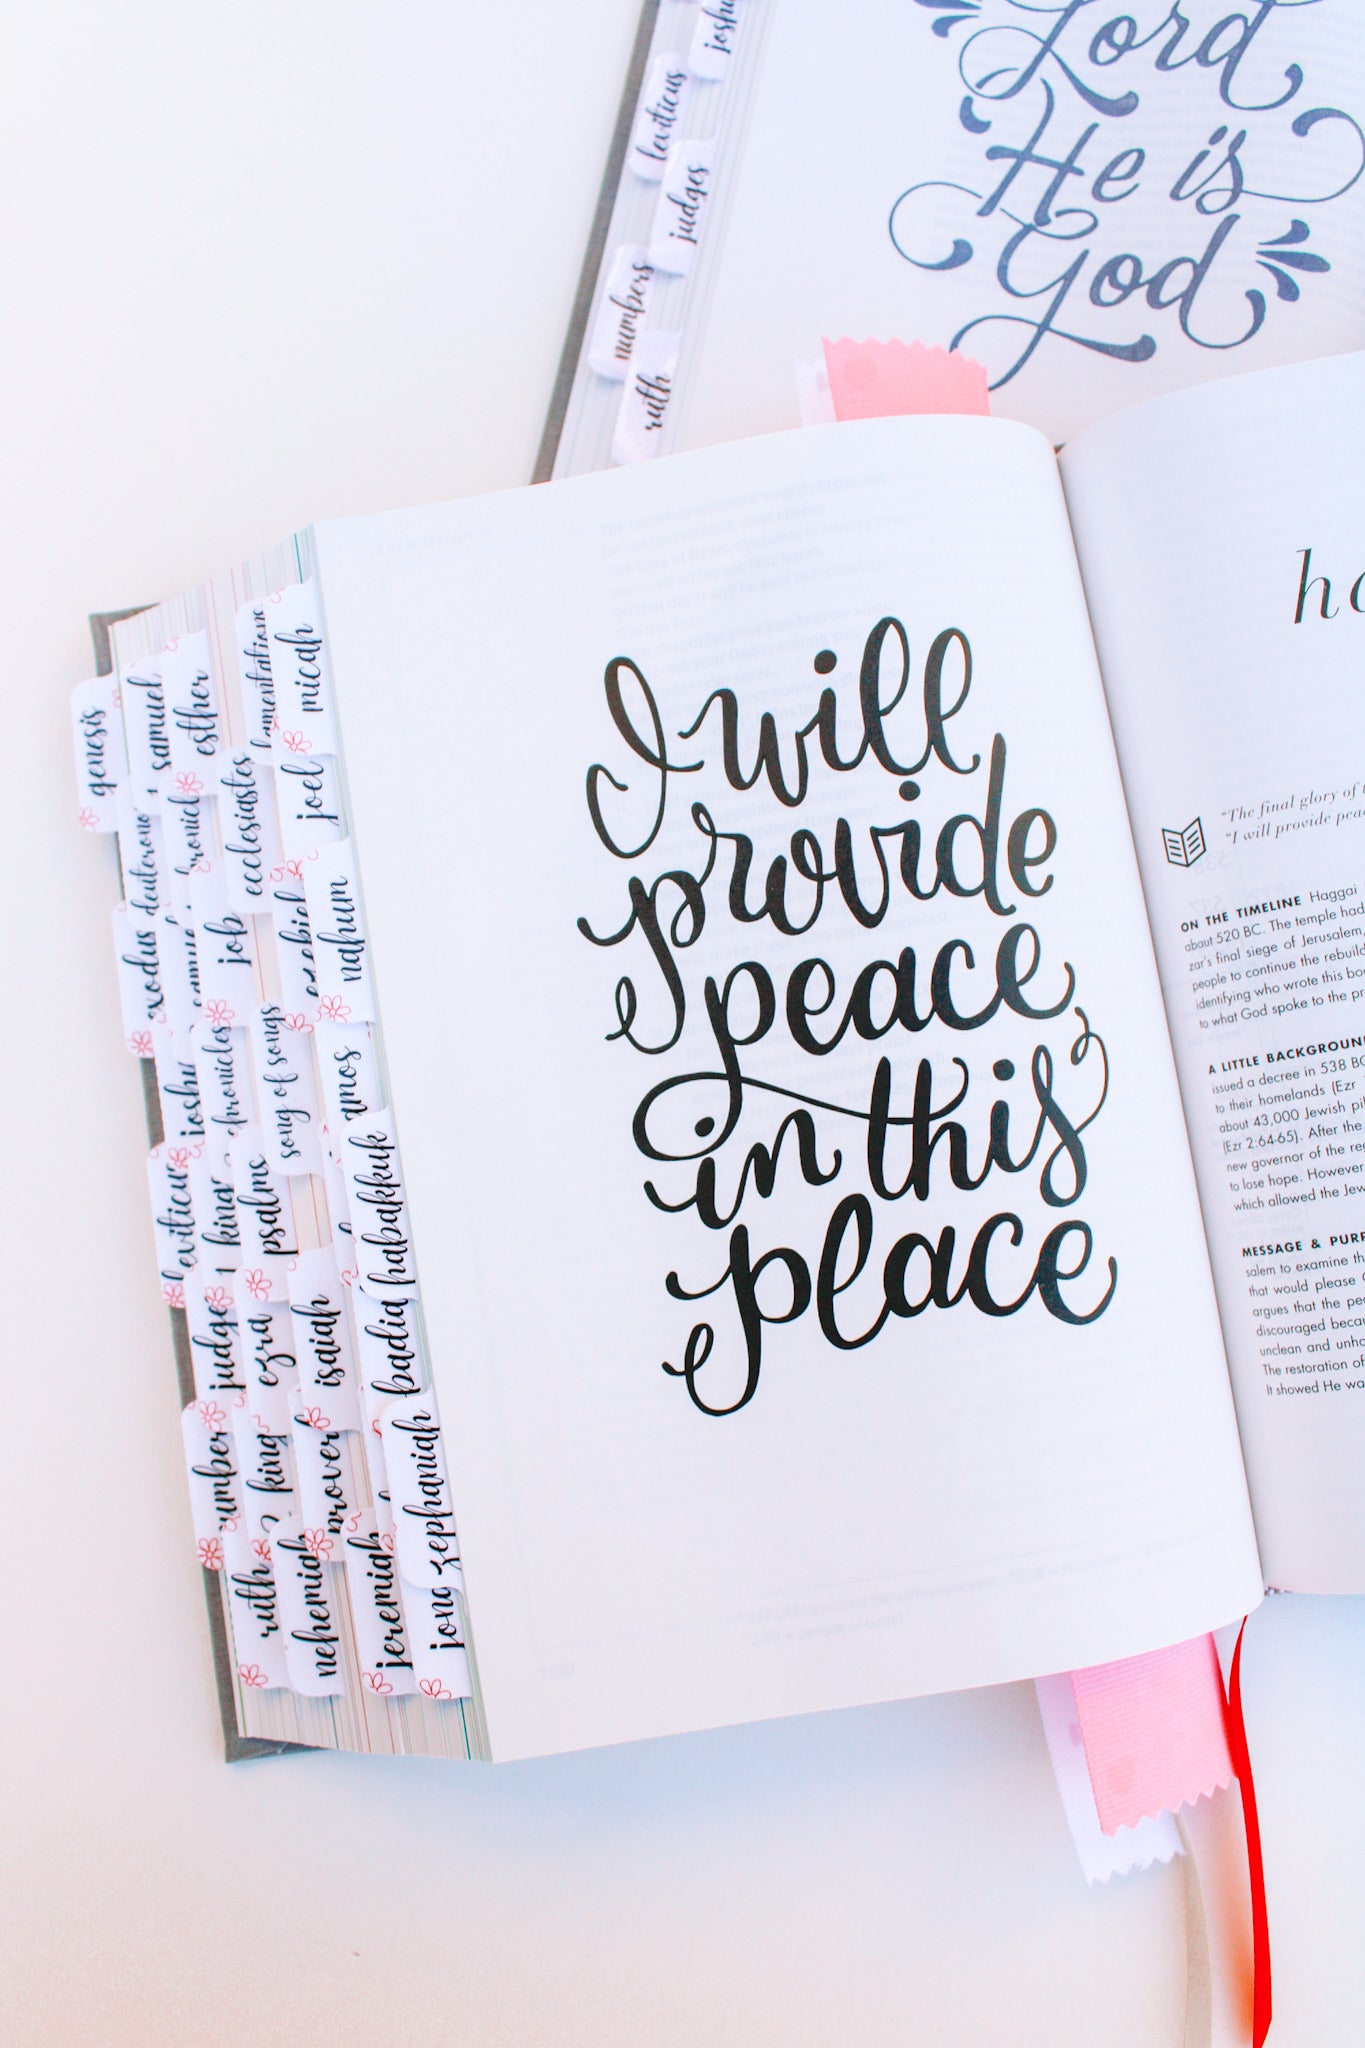 joshu
leviticus
judges
numbers
ruth
Lord
He is
God
genesis
samuel
esther
lamentations
micah
deuterono
ronicl
ecclesiastes
joel
exodus
samue
job
ezekiel
nahum
joshu
chronicles
song of songs
amos
leviticu
1 kings
psalms
habakkuk
judge
ezra
isaiah
badia
umber
2 king
prover
zephaniah
ruth
nehemiah
jeremiah
jona
I will
provide
peace
in this
place
ha
"The final glory of t
"I will provide peac
ON THE TIMELINE Haggai
about 520 BC. The temple had
zar's final siege of Jerusalem,
people to continue the rebuild
identifying who wrote this boo
to what God spoke to the pr
A LITTLE BACKGROUND
issued a decree in 538 BC
to their homelands (Ezr
about 43,000 Jewish pil
(Ezr 2:64-65). After the
new governor of the reg
to lose hope. However
which allowed the Jew
MESSAGE & PURP
salem to examine th
that would please G
argues that the peo
discouraged becau
unclean and unho
The restoration of
It showed He wa